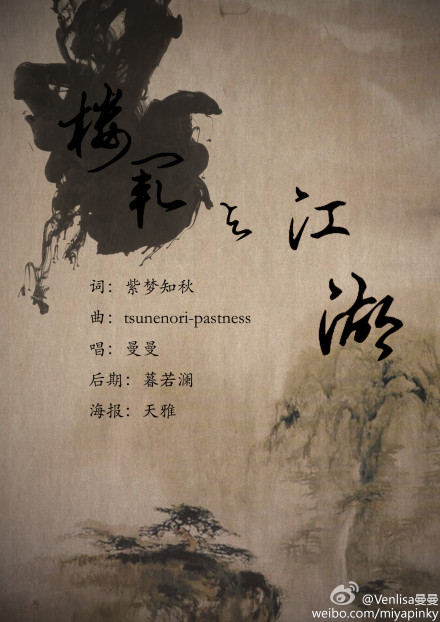 楼亂之江湖
词：紫梦知秋
曲：tsunenori-pastness
唱：曼曼
后期：暮若澜
海报：天雅
@Venlisa曼曼
weibo.com/miyapinky